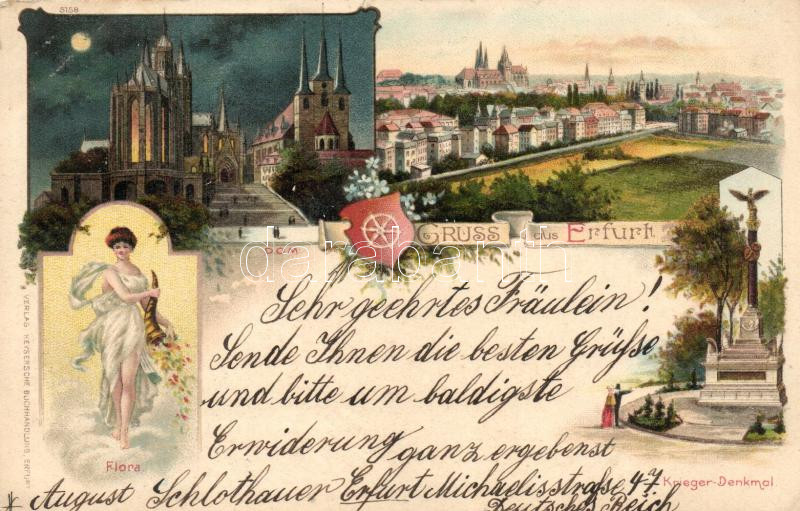 5158
DOM
GRUSS aus Erfurt.
Sehr geehrtes Fräulein!
Sende Ihnen die besten Grüsse
und bitte um baldigste
Erwiderung ganz ergebenst
August Schlothauer Erfurt Michaelisstraße 47
Deutsches Reich
Flora.
Krieger-Denkmal
VERLAG KEYSERSCHE BUCHHANDLUNG, ERFURT
darabanth.com